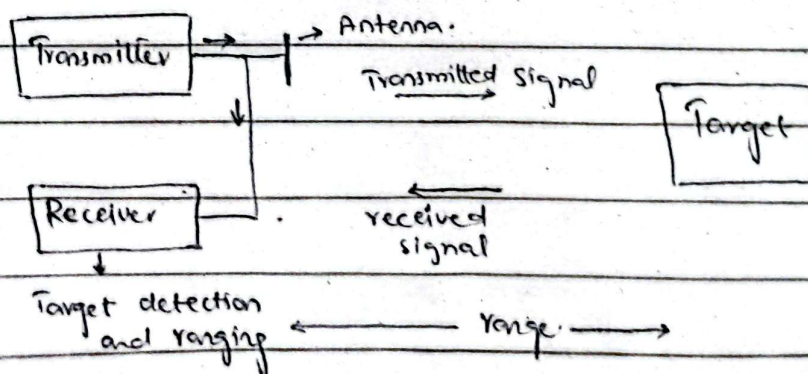 Transmitter
Antenna.
Transmitted Signal
Target
Receiver
received
signal
Target detection
and ranging
range.